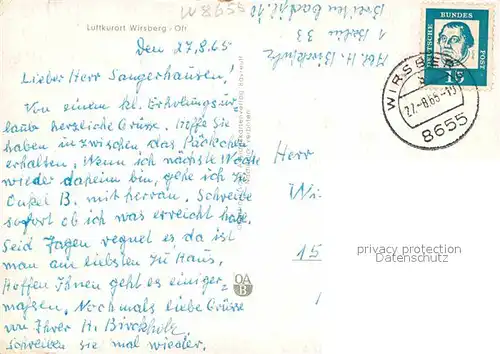 W8655
Luftkurort Wirsberg - Ofr.
Den 27.8.65
Lieber Herr Sangerhausen!
Von einem kl. Erholungsur-
laub herzliche Grüsse. Hoffe Sie
haben inzwischen das Päckchen
erhalten. Wenn ich nächste Woche
wieder daheim bin, gehe ich zu
Onkel B. mit herran. Schreibe
sofort ob ich was erreicht habe.
Seid Tagen regnet es, da ist
man am liebsten zu Haus.
Hoffen Ihnen geht es einiger-
maßen. Nochmals liebe Grüsse
von Ihrer H. Birckholz
Schreiben sie mal wieder.
Abs. H. Birckholz
1 Berlin 33
DEUTSCHE BUNDESPOST
15
WIRSBERG
27.-8.65-19
8655
Herr
Wi
15
1
OA
B
privacy protection
Datenschutz